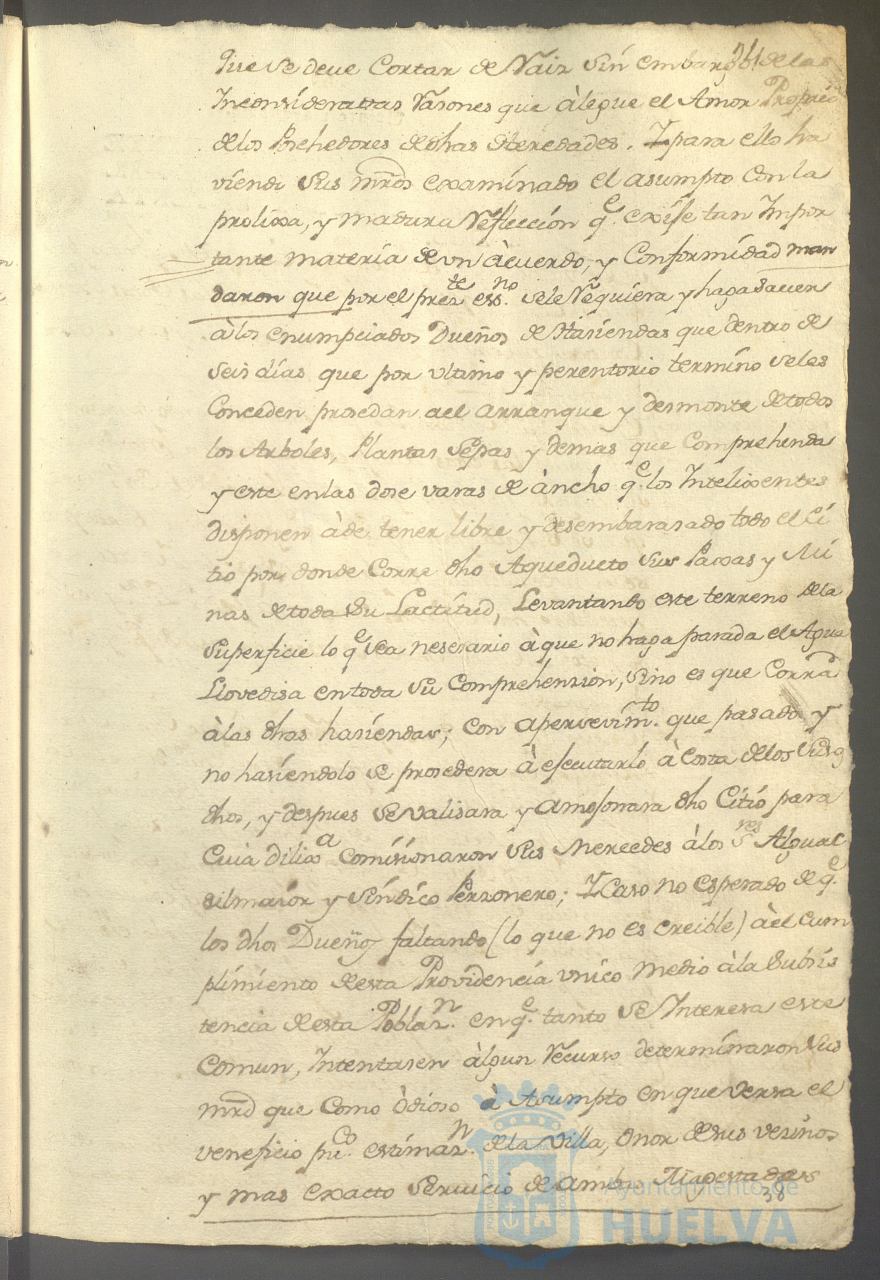 que se deve Cortar de Raiz sin embargo de las
361
Inconsideratas Rasones que àlegue el Amor Proprio
de los Pohehedores de dhas Heredades. Y para ello ha
viendo sus mrds examinado el asumpto con la
prolixa, y madura Reflección qe. exije tan Impor
tante materia de vn àcuerdo, y Conformidad man
daron que por el preste essno. se le Requiera y haga saver
à los enumpciados Dueños de Hasiendas que dentro de
Seis días que por vltimo y perentorio termino se les
Conceden prosedan ael arranque y desmonte de todos
los Arboles, Plantas Sepas y demas que Comprehenda
y este en las dose varas de àncho qe. los Intelixentes
disponen à de tener libre y desembarasado todo el Ci
tio por donde Corre dho Aqueducto sus Caxas y Mi
nas de toda su Lactitud, Levantando este terreno de la
Superficie lo qe. sea nesesario à que no haga parada el Agua
Llovedisa en toda su Comprehension, sino es que Corra
à las dhas hasiendas; con apersevimto. que pasado y
no hasiendolo se prosedera à esecutarlo à Costa de los
dhos, y despues se valisara y amojonara dho Citio para
Cuia dilixa. Comisionaron sus Mercedes à los Sres Alguac
silmaior y Síndico Perzonero; Y Caso no esperado de qe.
los dhos Dueños faltando (lo que no es creible) àel Cum
plimiento de esta Providencia vnico medio à la Subsis
tencia de esta Poblazn. en qe. tanto se Interesa este
Comun, Intentasen àlgun Recurso determinaron sus
mrd que Como òdioso à Asumpto en que versa el
veneficio puco. estimazn. de la Villa, Onor de sus vesinos
y mas exacto Servicio de ambas Magestades
38
Ayuntamiento de
HUELVA